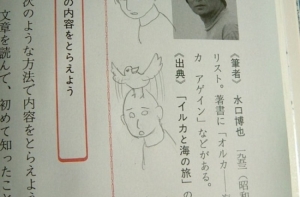 《筆者》 水口博也 一九五三（昭和
リスト。著書に「オルカ―
カ アゲイン」などがある。
《出典》「イルカと海の旅」の
の内容をとらえよう
次のような方法で内容をとらえよう
文章を読んで、初めて知ったこと